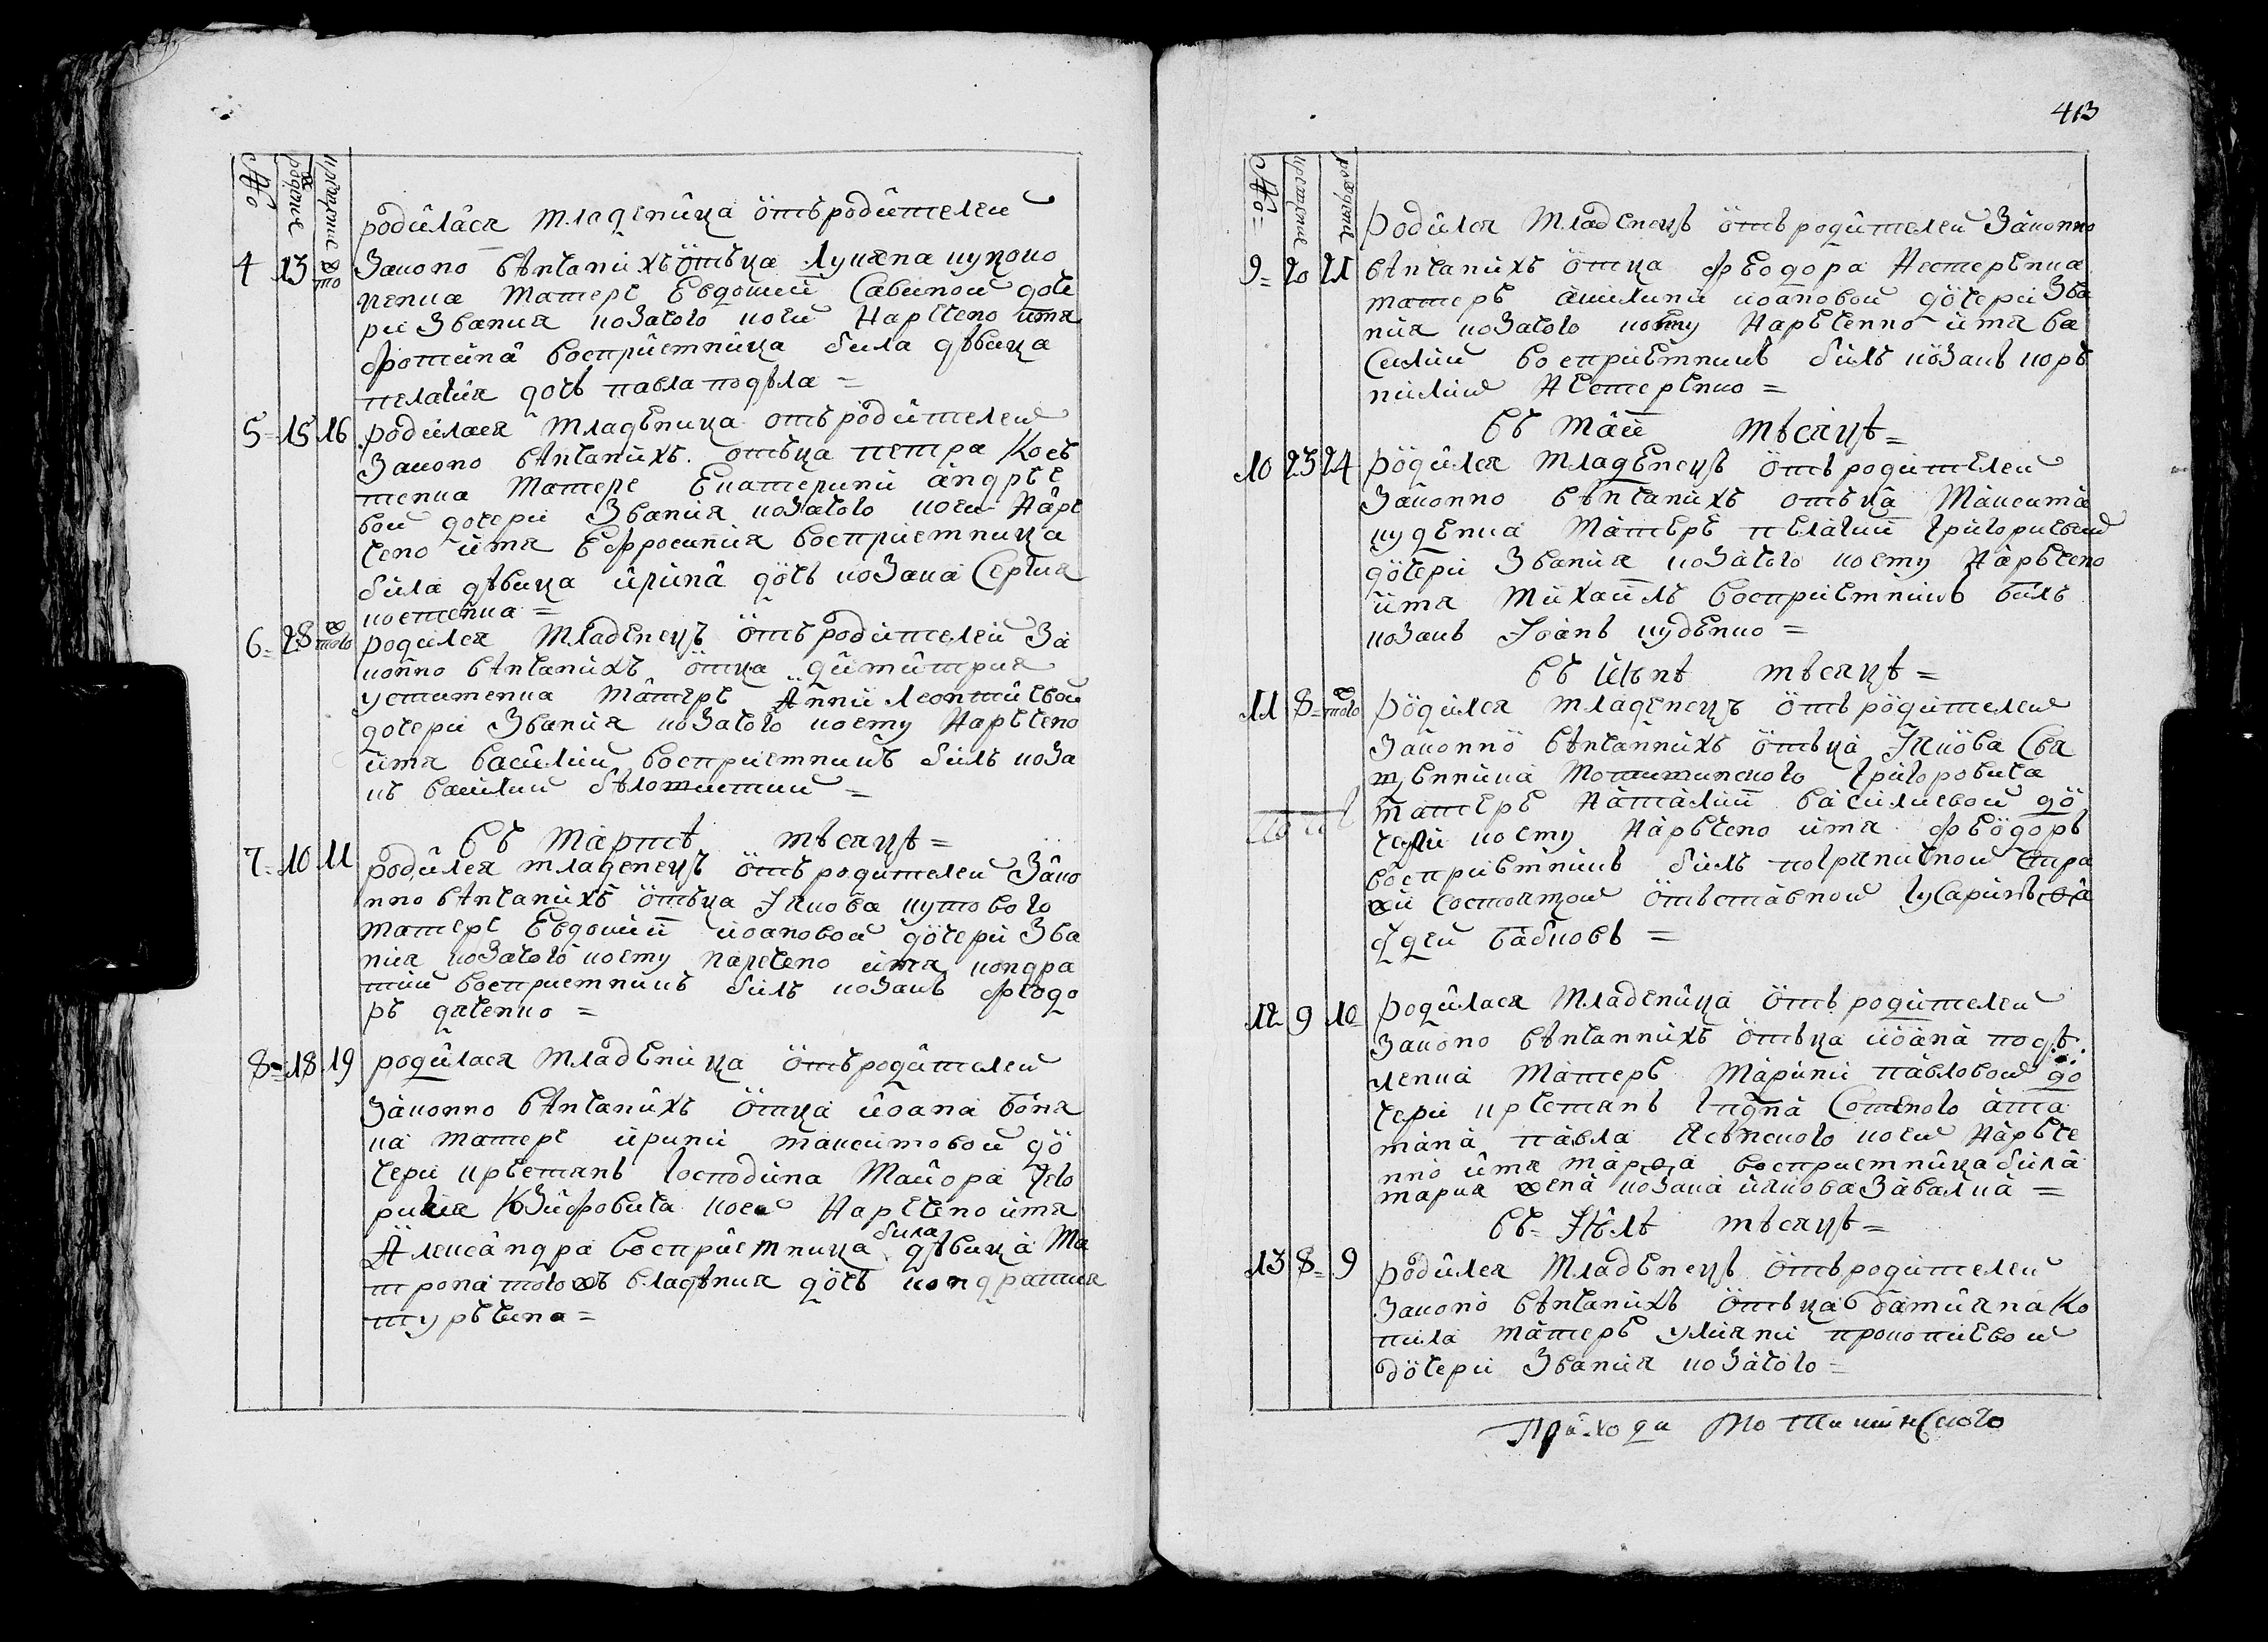 No
рождение
крещение
родилася младеница отъ родителей
4 13 то же законо венчанихъ отъца Лукяна цуконо
ленка матере Евдокии Савиной доче
ри звания козачого коей наречено имя
Фотина восприемница била девица
Пелагия дочь Павла Подела =
5 = 15 16 родилася младеница отъ родителей
законо венчанихъ отъца Петра Кось
тенка матере Екатерини Андрее
вой дочери звания козачого коей наре
чено имя Ефросиния восприемница
била девица Ирина дочь козака Сергия
Костенка =
6 = 28 тогож родился младенецъ отъ родителей за
конно венчанихъ отца Димитрия
Устименка матере Анни Леонтиевой
дочери звания козачого коему наречено
имя Василий восприемникъ билъ коза
къ Василий Беломистий =
въ марте месяце =
7 = 10 11 родился младенецъ отъ родителей зако
нно венчанихъ отъца Iякова Кутового
матере Евдокии Иоановой дочери зва
ния козачого коему наречено имя Кондра
тий восприемникъ билъ козакъ Феодо
ръ Дяченко =
8 = 18 19 родилася младеница отъ родителей
законно венчанихъ отца Иоана Боня
ка матере Ирини Максимовой до
чери крестянъ господина маиора Гео
ргия Кзифовича коей наречено имя
Александра восприемница била девица Ма
трона того ж владения дочь Кондратия
Туречина =
413
No =
крещение
рождение
родился младенецъ отъ родителей законно
9 = 20 21 венчанихъ отца Феодора Нестеренка
матере Акилини Иоановой дочери зва
ния козачого коему нареченно имя Ва
силий восприемникъ билъ козакъ Кор
нилий Нестеренко =
въ маи месяце =
10 23 24 родился младенецъ отъ родителей
законно венчанихъ отъца Максима
Куденка матере Пелагии Григориевой
дочери звания козачого коему наречено
имя Михаилъ восприемникъ билъ
козакъ Iоанъ Куденко =
въ июне месяце =
11 8 = тогож родился младенецъ отъ родителей
законно венчаннихъ отъца Iякова свя
щенника Мотижинского Григоровича
матере Наталии Василиевой до
чери коему наречено имя Феодоръ
восприемникъ билъ пограничной стра
жи состоящой отъставной гусаринъ Фа
ддей Бабковъ =
12 9 10 родилася младеница отъ родителей
законо венчаннихъ отъца Иоана Поде
ленка матере Марини Павловой до
чери крестянъ гпдна сотеного ата
мана Павла Ясенского коей нарече
нно имя Марфа восприемница била
Мария жена козака Иякова Завалка =
въ = Iюле месяце =
13 8 = 9 родился младенецъ отъ родителей
законо венчанихъ отъца Дамияна Ко
пила матере Улияни Прокопиевой
дочери звания козачого =
Прихода Мотижинского